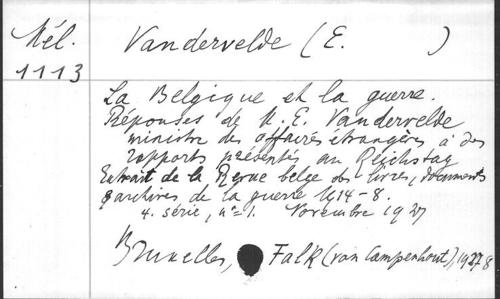 Mél.
1113
Vandervelde (E. )
La Belgique et la guerre.
Réponses de M. E. Vandervelde
ministre des affaires étrangères, à des
rapports présentés au Reichstag
Extrait de la Revue belge des livres, documents
& archives de la guerre 1914-8.
4. série, n° 1. Novembre 1927
Bruxelles, Falk (van Campenhout), 1927 8